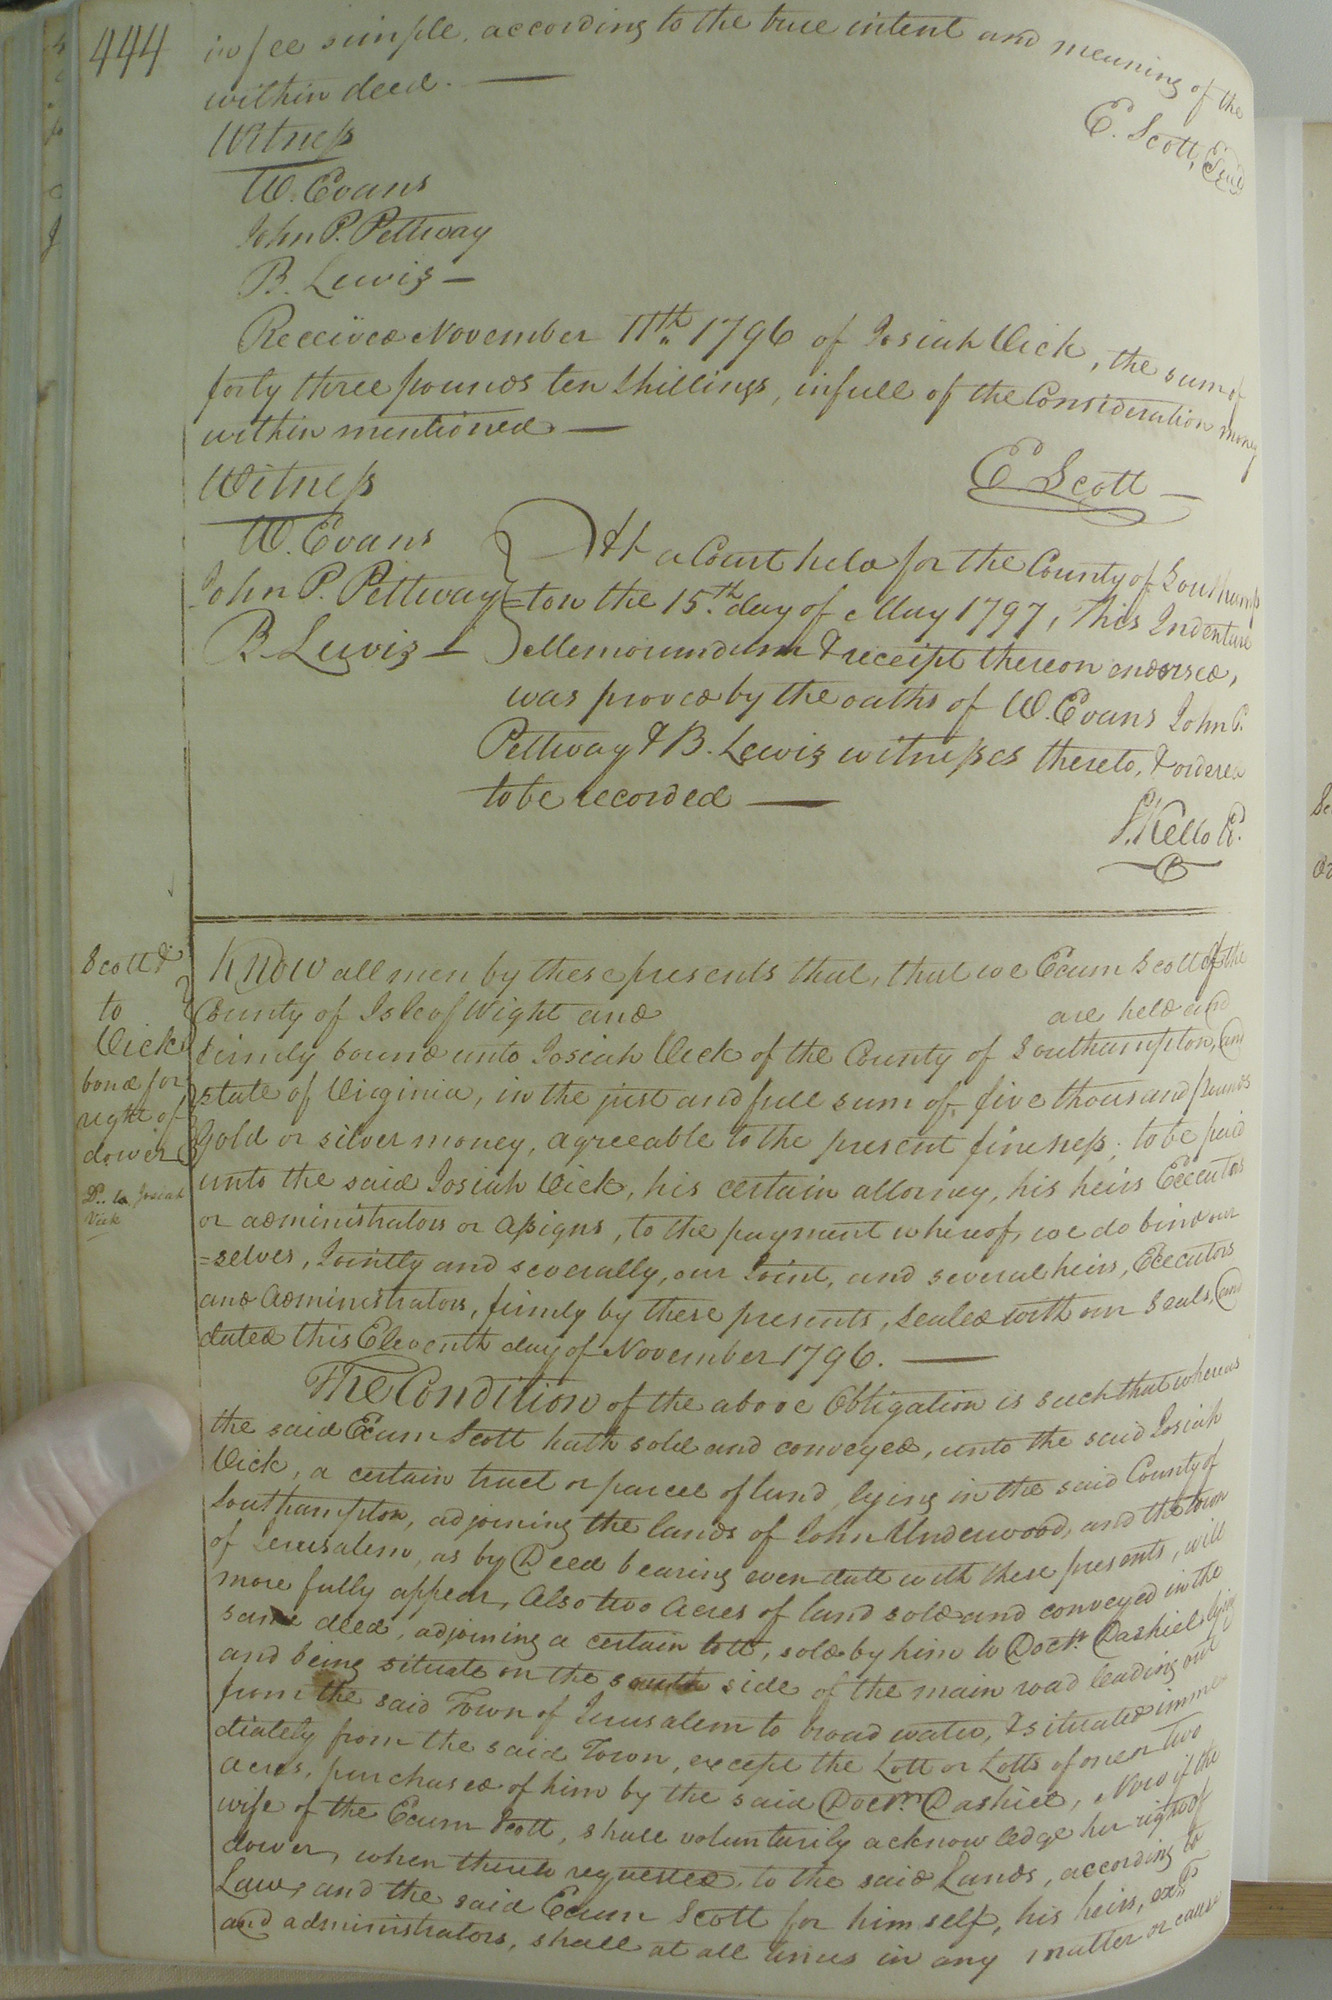 444
in fee simple, according to the true intent and meaning of the
within deed. —
Witness
W. Evans
John P. Pettway
B. Lewis —
E. Scott, Seal
Received November 11th 1796 of Josiah Vick, the sum of
forty three pounds ten shillings, in full of the Consideration money
within mentioned —
Witness
E Scott —
W. Evans
John P. Pettway
B. Lewis —
At a Court held for the County of Southamp
=ton the 15th day of May 1797, This Indenture
Memorandum & receipt thereon endorsed,
was proved by the oaths of W. Evans John P.
Pettway & B. Lewis witnesses thereto, & ordered
to be recorded —
S. Kello Ck.
Scott
to
Vick
bond for
right of
dower
Do. to Josiah
Vick
Know all men by these presents that, that we Exum Scott of the
County of Isle of Wight and are held and
firmly bound unto Josiah Vick of the County of Southampton, and
state of Virginia, in the just and full sum of, five thousand pounds
gold or silver money, agreeable to the present fineness, to be paid
unto the said Josiah Vick, his certain attorney, his heirs Executors
or administrators or assigns, to the payment whereof, we do bind our
=selves, Jointly and severally, our Joint, and several heirs, Executors
and Administrators, firmly by these presents, sealed with our seals, and
dated this Eleventh day of November 1796. —
The Condition of the above Obligation is such that whereas
the said Exum Scott hath sold and conveyed, unto the said Josiah
Vick, a certain tract or parcel of land, lying in the said County of
Southampton, adjoining the lands of John Underwood, and the town
of Jerusalem, as by Deed bearing even date with these presents, will
more fully appear, Also two Acres of land sold and conveyed in the
same deed, adjoining a certain lott, sold by him to Doctr. Dashiel lying
and being situate on the south side of the main road leading out
from the said Town of Jerusalem to broad water, & situated imme
diately from the said Town, except the Lott or Lotts of one or two
acres, purchased of him by the said Doctr. Dashiel, Now if the
wife of the Exum Scott, shall voluntarily acknowledge her right of
dower, when thereto requested, to the said Lands, according to
Law, and the said Exum Scott for himself, his heirs, exrs.
and administrators, shall at all times in any matter or cause